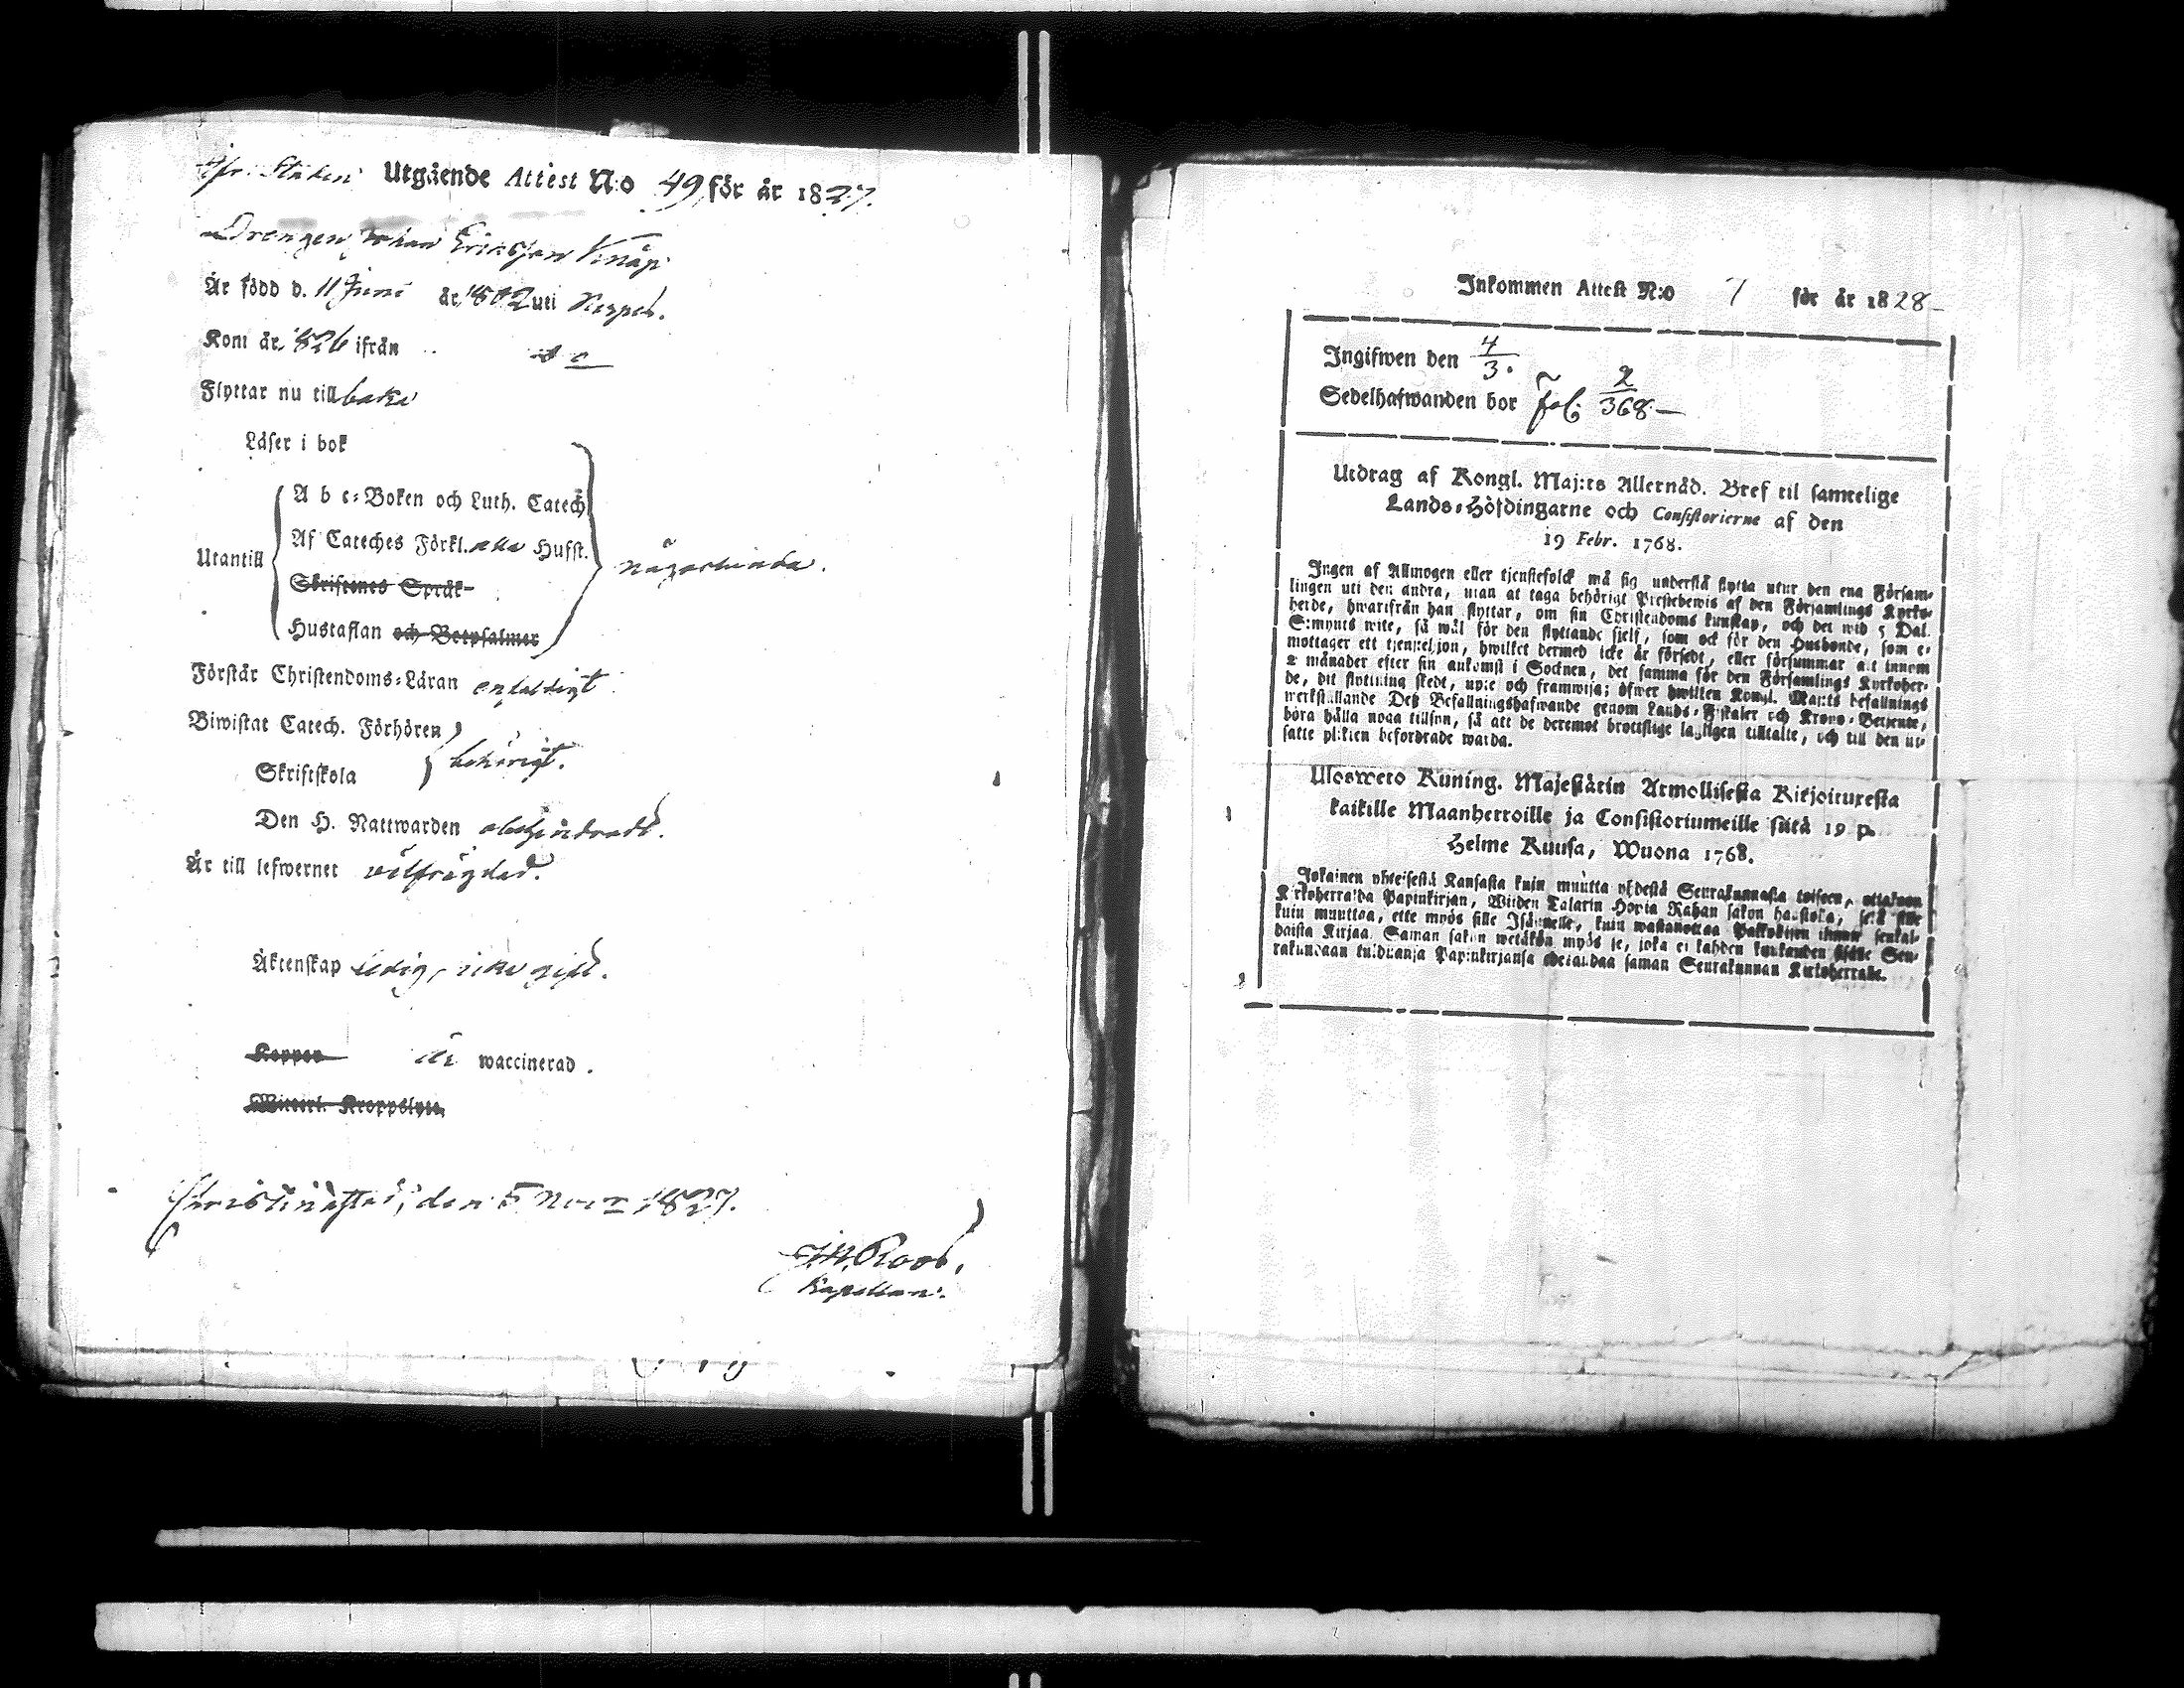 Utgående Attest N:o 49 för år 1827.
Drengen Johan Ericsson Knåp
Är född d. 11 Juni år 1802 uti Nerpes.
Kom år 1826 ifrån
Flyttar nu tillbaka
Läser i bok
A b c-Boken och Luth. Catech.
Af Cateches Förkl. Husst.
Utantill någorlunda.
Skriftenes Språk
Hustaflan och Botpsalmer
Förstår Christendoms-Läran enfaldigt
Biwistat Catech. Förhören
Skriftskola behörigt.
Den H. Nattwarden obehindradt.
Är till lefwernet välfrägdad.
Äktenskap ledig, icke gift.
Koppor är waccinerad.
Witterl. Kroppslyte
Christinestad, den 5 Nov 1827.
Roos.
Kapellan.
Inkommen Attest N:o 7 för år 1828
Ingifwen den 4/3.
Sedelhafwanden bor fol: 2/368
Utdrag af Kongl. Maj:ts Allernåd. Bref til samtelige
Lands-Höfdingarne och Consistorierne af den
19 Febr. 1768.
Ingen af Allmogen eller tjenstefolck må sig understå flytta utur den ena Försam-
lingen uti den andra, utan at taga behörigt Prestebewis af den Församlings Kyrko-
herde, hwarifrån han flyttar, om sin Christendoms kunskap, och det wid 5 Dal.
S:mynts wite, så wäl för den flyttande sjelf, som ock för den Husbonde, som e-
mottager ett tjenstehjon, hwilket dermed icke är försedt, eller försummar att innom
2 månader efter sin ankomst i Socknen, det samma för den Församlings Kyrkoher-
de, dit flyttning skedt, upte och framwisa; öfwer hwilken Kongl. Maj:ts befallnings
werkställande Deß Befallningshafwande genom Lands-Fiskaler och Krono-Betjente,
böra hålla noga tillsyn, så att de deremot brottslige lagligen tilltalte, och till den ut-
satte plikten befordrade warda.
Ulosweto Kuning. Majestätin Armollisesta Kirjoituxesta
kaikille Maanherroille ja Consistoriumeille siitä 19 p.
Helme Kuusa, Wuona 1768.
Jokainen yhteisestä Kansasta kuin muutta yhdestä Seurakunnasta toiseen, ottakoon
Kirkoherralda Papinkirjan, Wiiden Talarin Hopia Rahan sakon haastolla, sekä sille
kuin muuttaa, ette myös sille Isännelle, kuin wastanottaa Palkollisen ilman senkal-
daista Kirjaa. Saman sakon wetäkön myös se, joka ei kahden kuukauden sisälle Seu-
rakundaan tulduansa Papinkirjansa edesandaa saman Seurakunnan Kirkoherralle.